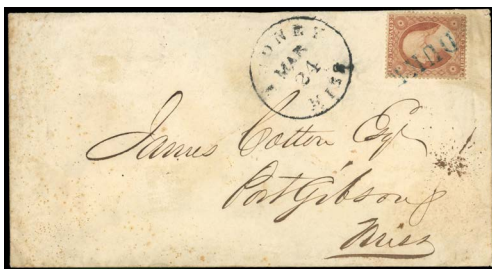 RODNEY
MAR
24
MISS
PAID
James Cotton Esqr
Port Gibson
Miss